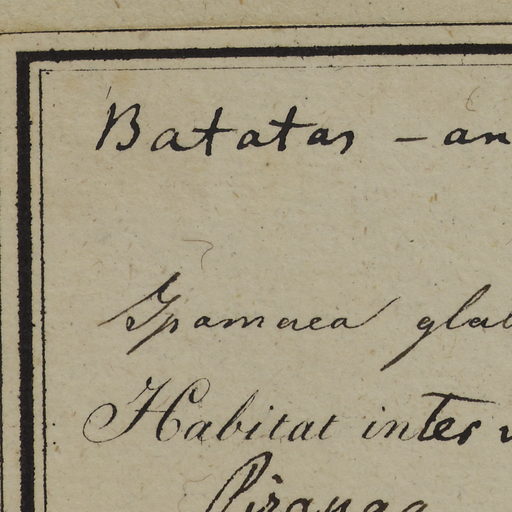 Batatas - an
Ipamaea glab
Habitat inter v
Piranga